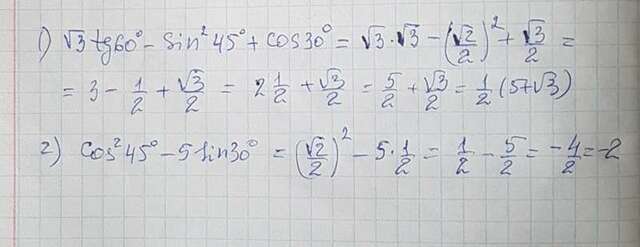 1) √3 tg60° - sin²45° + cos30° = √3·√3 - (√2/2)² + √3/2 =
= 3 - 1/2 + √3/2 = 2 1/2 + √3/2 = 5/2 + √3/2 = 1/2 (5+√3)
2) cos²45° - 5 sin30° = (√2/2)² - 5·1/2 = 1/2 - 5/2 = -4/2 = -2